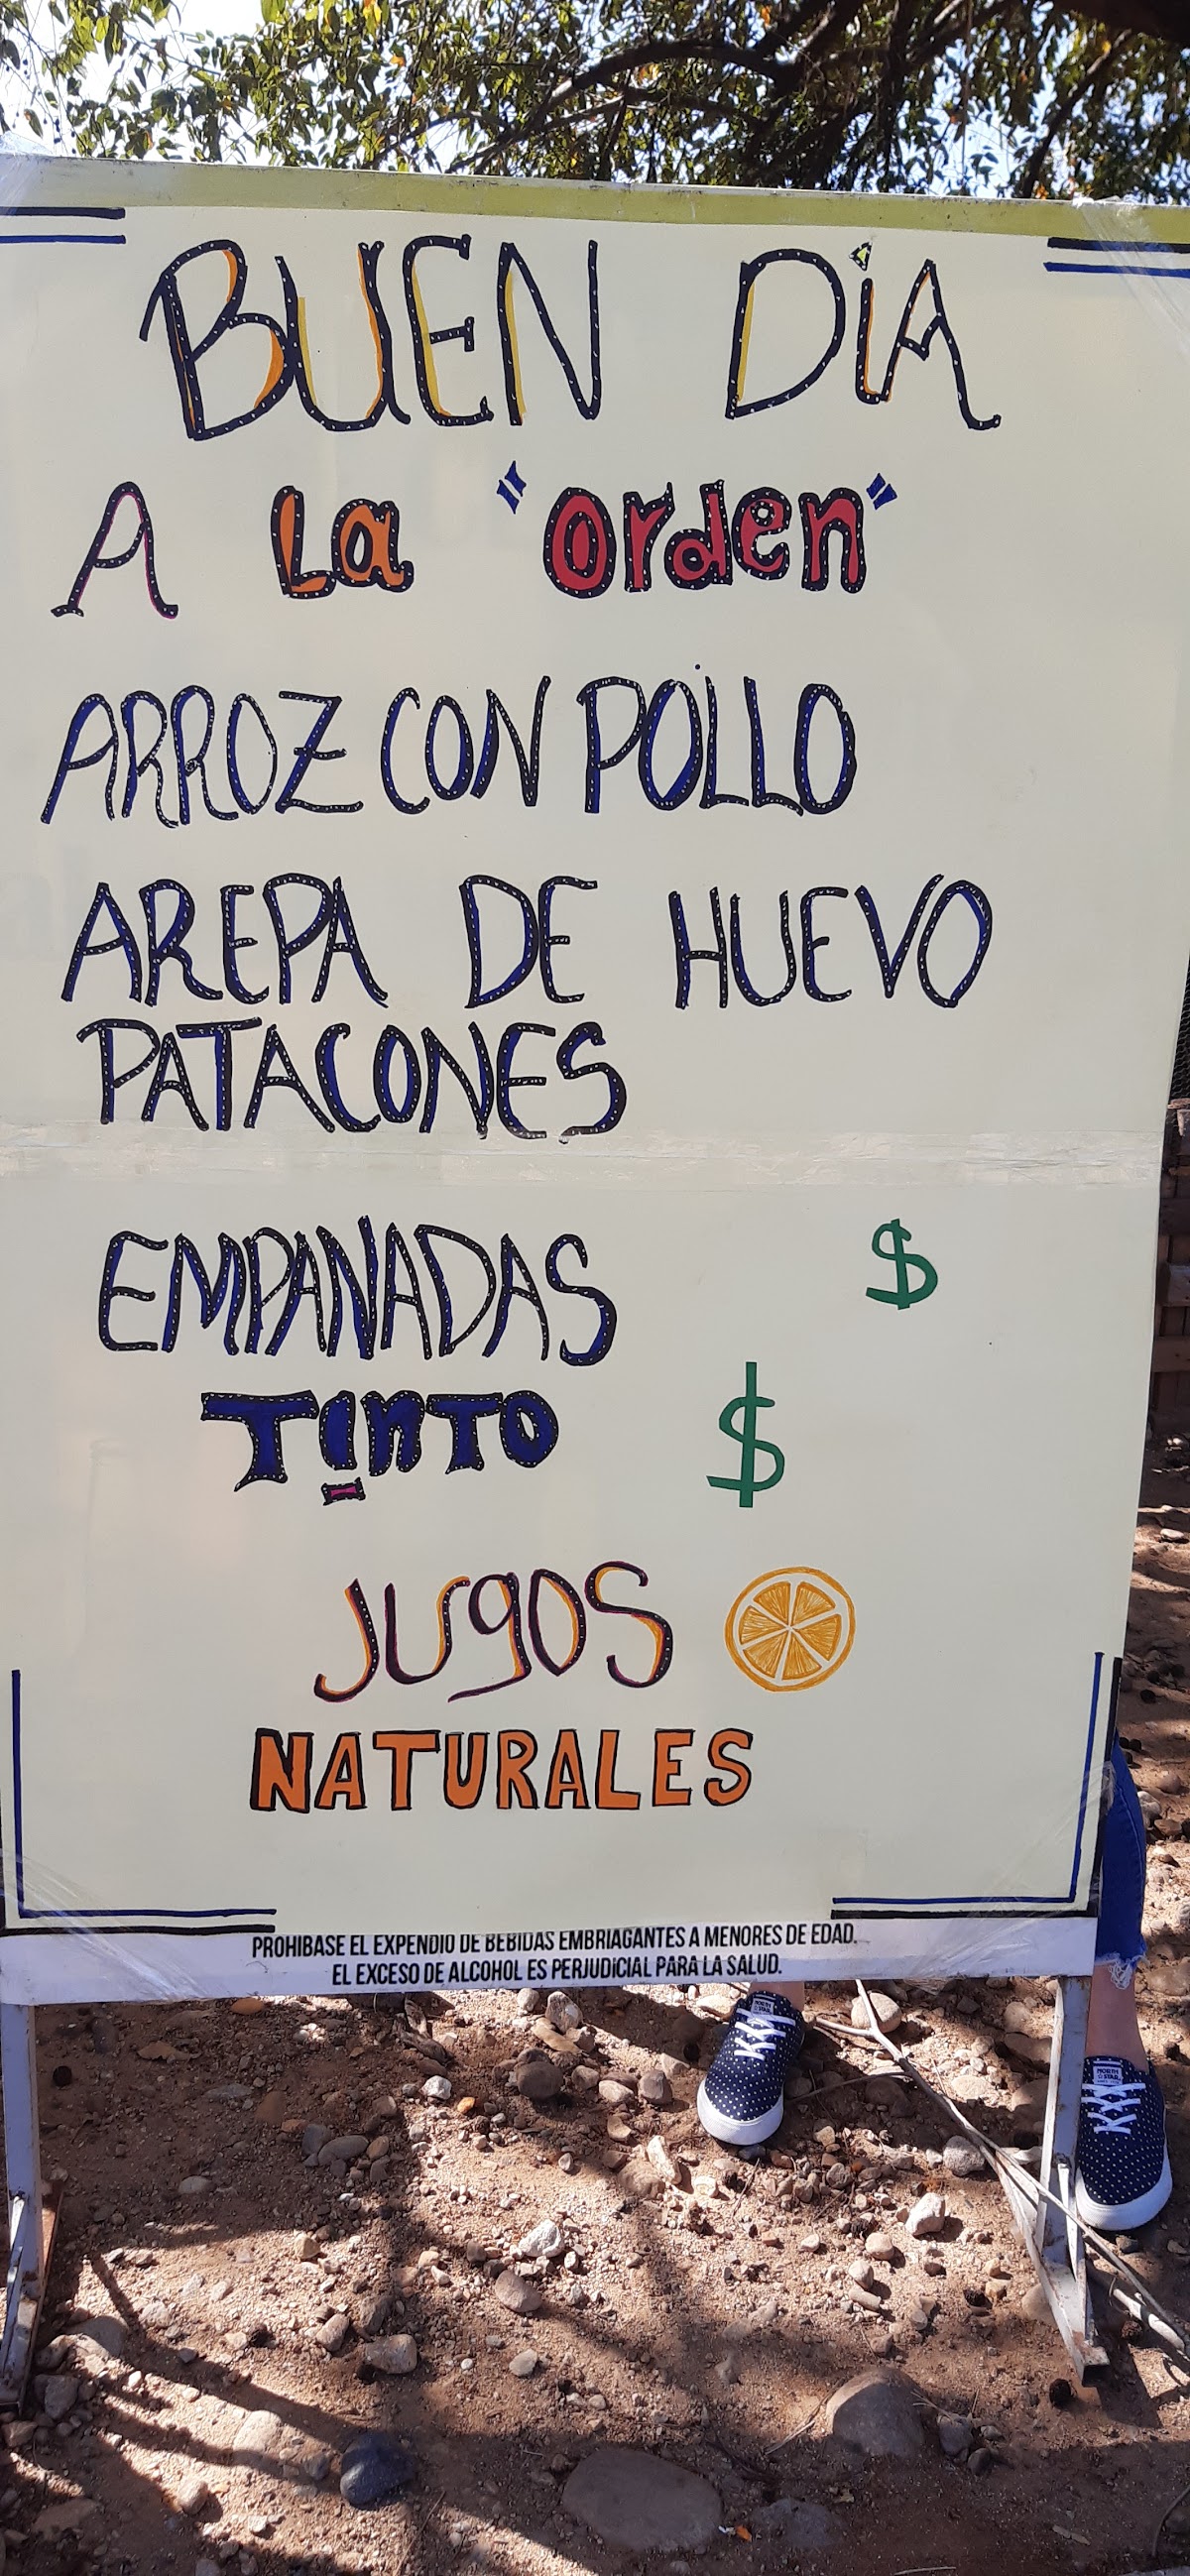 BUEN DíA
A La "orden"
ARROZ CON POLLO
AREPA DE HUEVO
PATACONES
EMPANADAS $
TINTO $
JUgOS
NATURALES
PROHIBASE EL EXPENDIO DE BEBIDAS EMBRIAGANTES A MENORES DE EDAD.
EL EXCESO DE ALCOHOL ES PERJUDICIAL PARA LA SALUD.
NORTH STAR
NORTH STAR